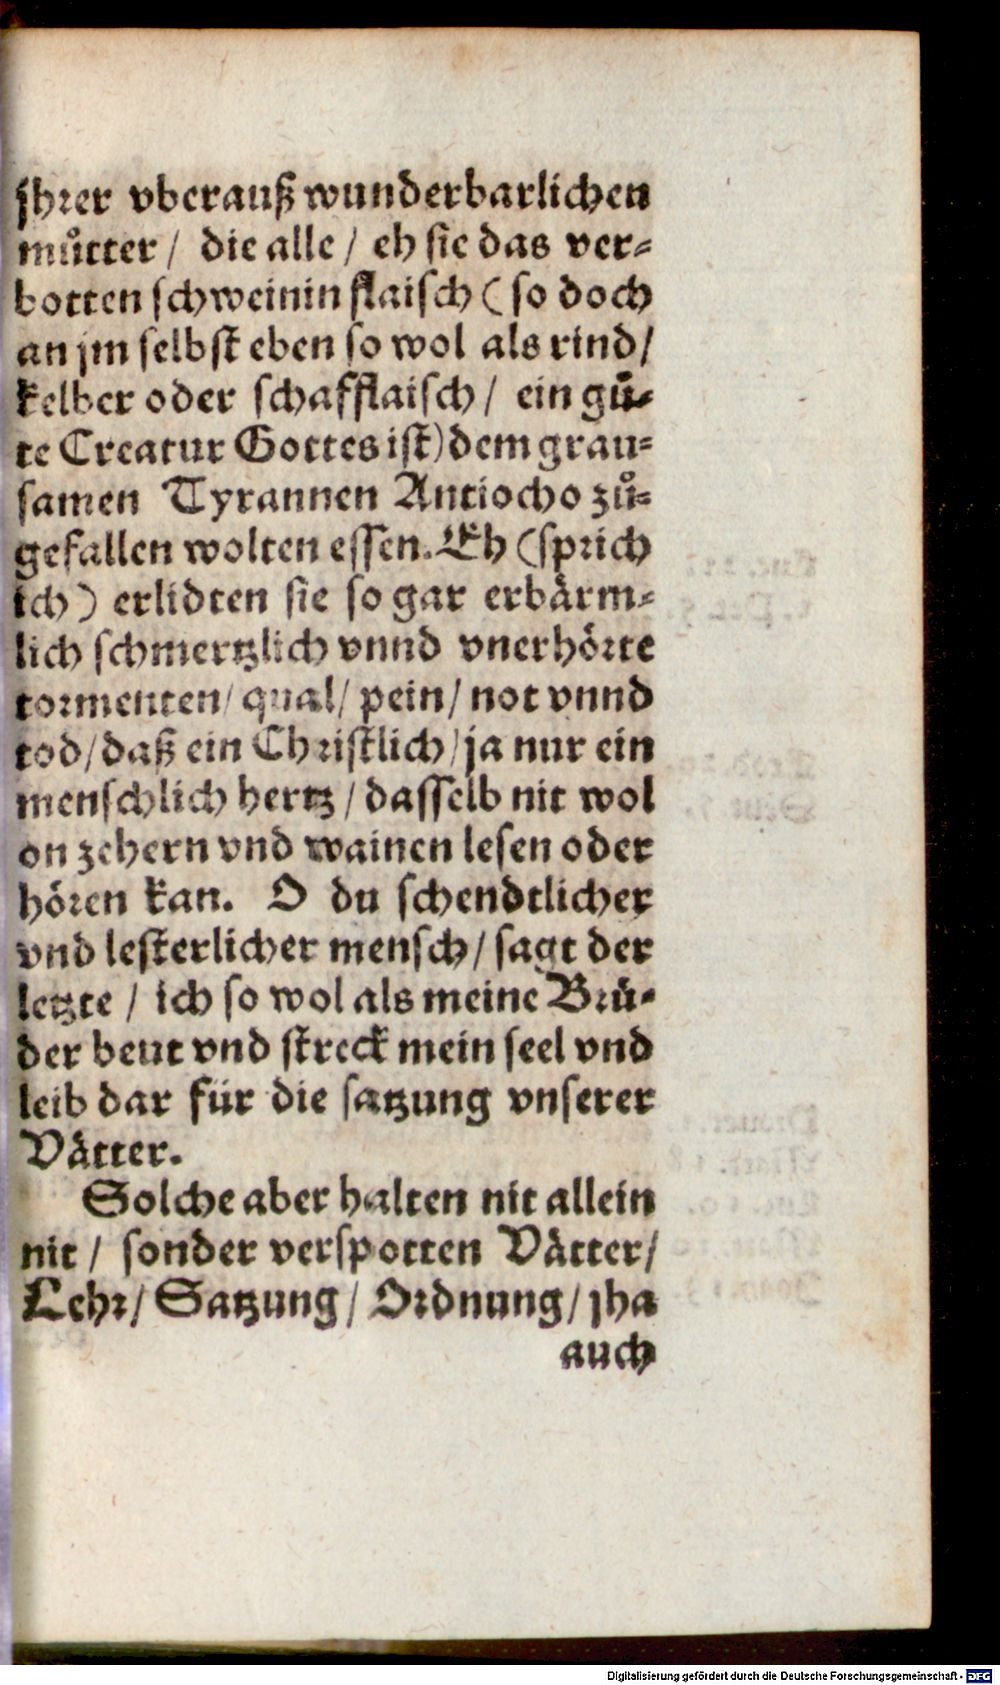 jhrer vberauß wunderbarlichen
muͦtter / die alle / eh sie das ver⸗
botten schweinin flaisch ( so doch
an jm selbst eben so wol als rind /
kelber oder schafflaisch / ein guͦ⸗
te Creatur Gottes ist) dem grau⸗
samen Tyrannen Antiocho zuͦ⸗
gefallen wolten essen. Eh (sprich
ich ) erlidten sie so gar erbaͤrm⸗
lich schmertzlich vnnd vnerhoͤrte
tormenten / qual / pein / not vnnd
tod / daß ein Christlich / ja nur ein
menschlich hertz / dasselb nit wol
on zehern vnd wainen lesen oder
hoͤren kan. O du schendtlicher
vnd lesterlicher mensch / sagt der
letzte / ich so wol als meine Bruͤ⸗
der beut vnd streck mein seel vnd
leib dar für die satzung vnserer
Vaͤtter.
Solche aber halten nit allein
nit / sonder verspotten Vaͤtter /
Lehr / Satzung / Ordnung / jha
auch
Digitalisierung gefördert durch die Deutsche Forschungsgemeinschaft - DFG